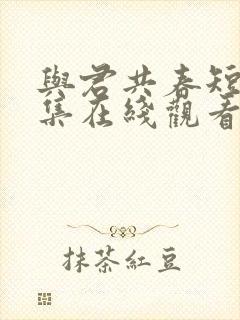 與君共春短
集在綫觀看
抹茶紅豆